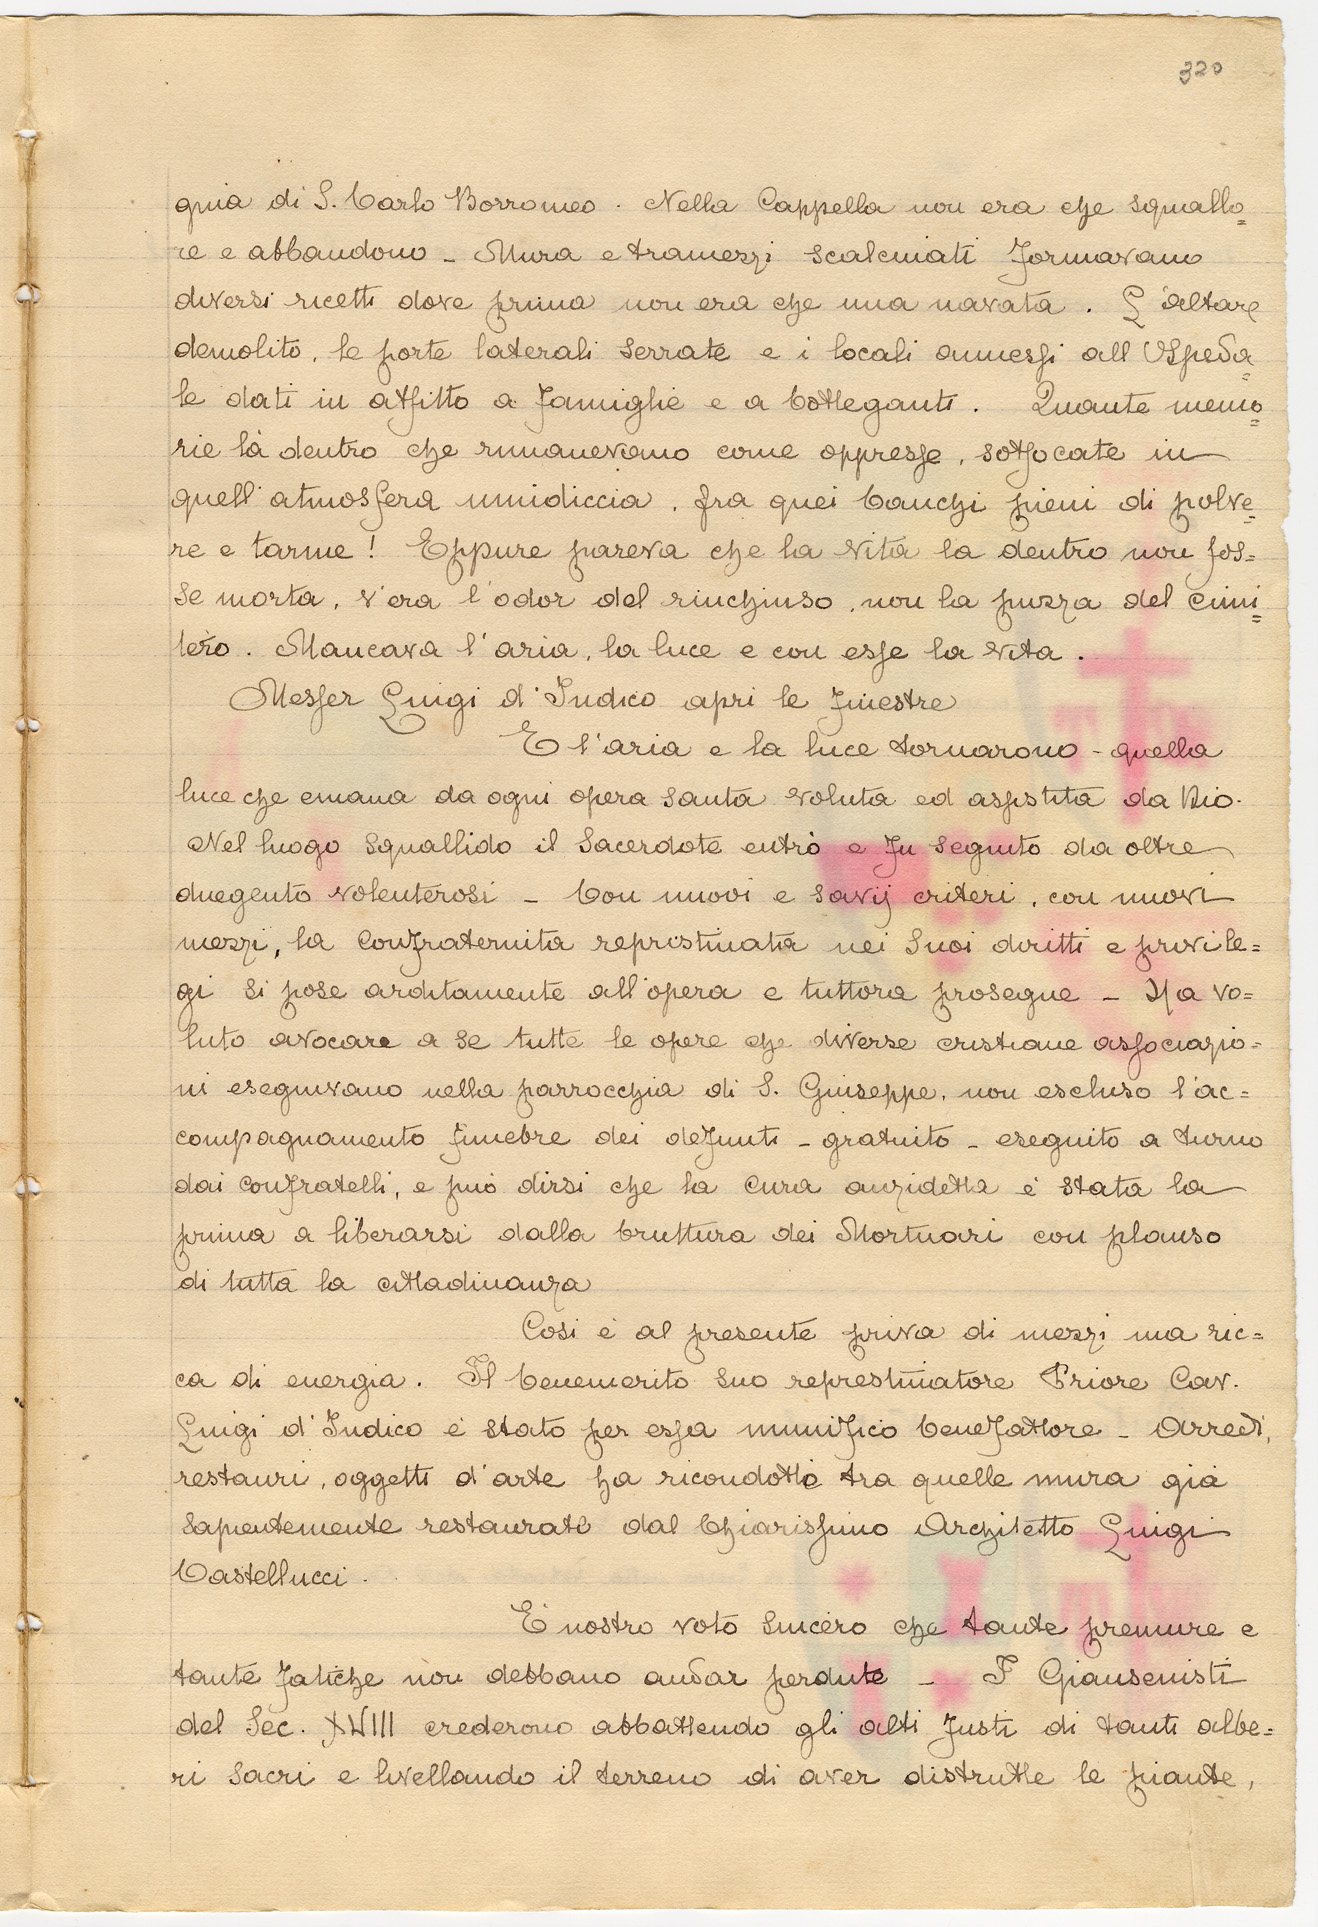 320
quia di S. Carlo Borromeo. Nella Cappella non era che squallo=
re e abbandono - Mura e tramezzi scalcinati formavano
diversi ricetti dove prima non era che una navata. L'altare
demolito, le porte laterali serrate e i locali annessi all'Ospeda=
le dati in affitto a famiglie e a botteganti. Quante memo=
rie là dentro che rimanevano come oppresse, soffocate in
quell'atmosfera umidiccia, fra quei banchi pieni di polve=
re e tarme! Eppure pareva che la vita la dentro non fos=
se morta, v'era l'odor del rinchiuso, non la puzza del cimi=
tero. Mancava l'aria, la luce e con esse la vita.
Messer Luigi d'Indico aprì le finestre
E l'aria e la luce tornarono - quella
luce che emana da ogni opera santa voluta ed assistita da Dio.
Nel luogo squallido il Sacerdote entrò e fu seguito da oltre
duegento volenterosi - Con nuovi e savij criteri, con nuovi
mezzi, la Confraternita repristinata nei suoi diritti e privile=
gi si pose arditamente all'opera e tuttora prosegue - Ha vo=
luto avocare a se tutte le opere che diverse cristiane associazio=
ni eseguivano nella parrocchia di S. Giuseppe, non escluso l'ac=
compagnamento funebre dei defunti - gratuito - eseguito a turno
dai confratelli, e può dirsi che la cura anzidetta è stata la
prima a liberarsi dalla bruttura dei Mortuari con plauso
di tutta la cittadinanza
Così è al presente priva di mezzi ma ric=
ca di energia. Il benemerito suo represtinatore Priore Cav.
Luigi d'Indico è stato per essa munifico benefattore - Arredi,
restauri, oggetti d'arte ha ricondotto tra quelle mura già
sapientemente restaurate dal Chiarissimo Architetto Luigi
Castellucci.
E' nostro voto sincero che tante premure e
tante fatiche non debbano andar perdute - I Giansenisti
del Sec. XVIII crederono abbattendo gli alti fusti di tanti albe=
ri sacri e livellando il terreno di aver distrutte le piante,